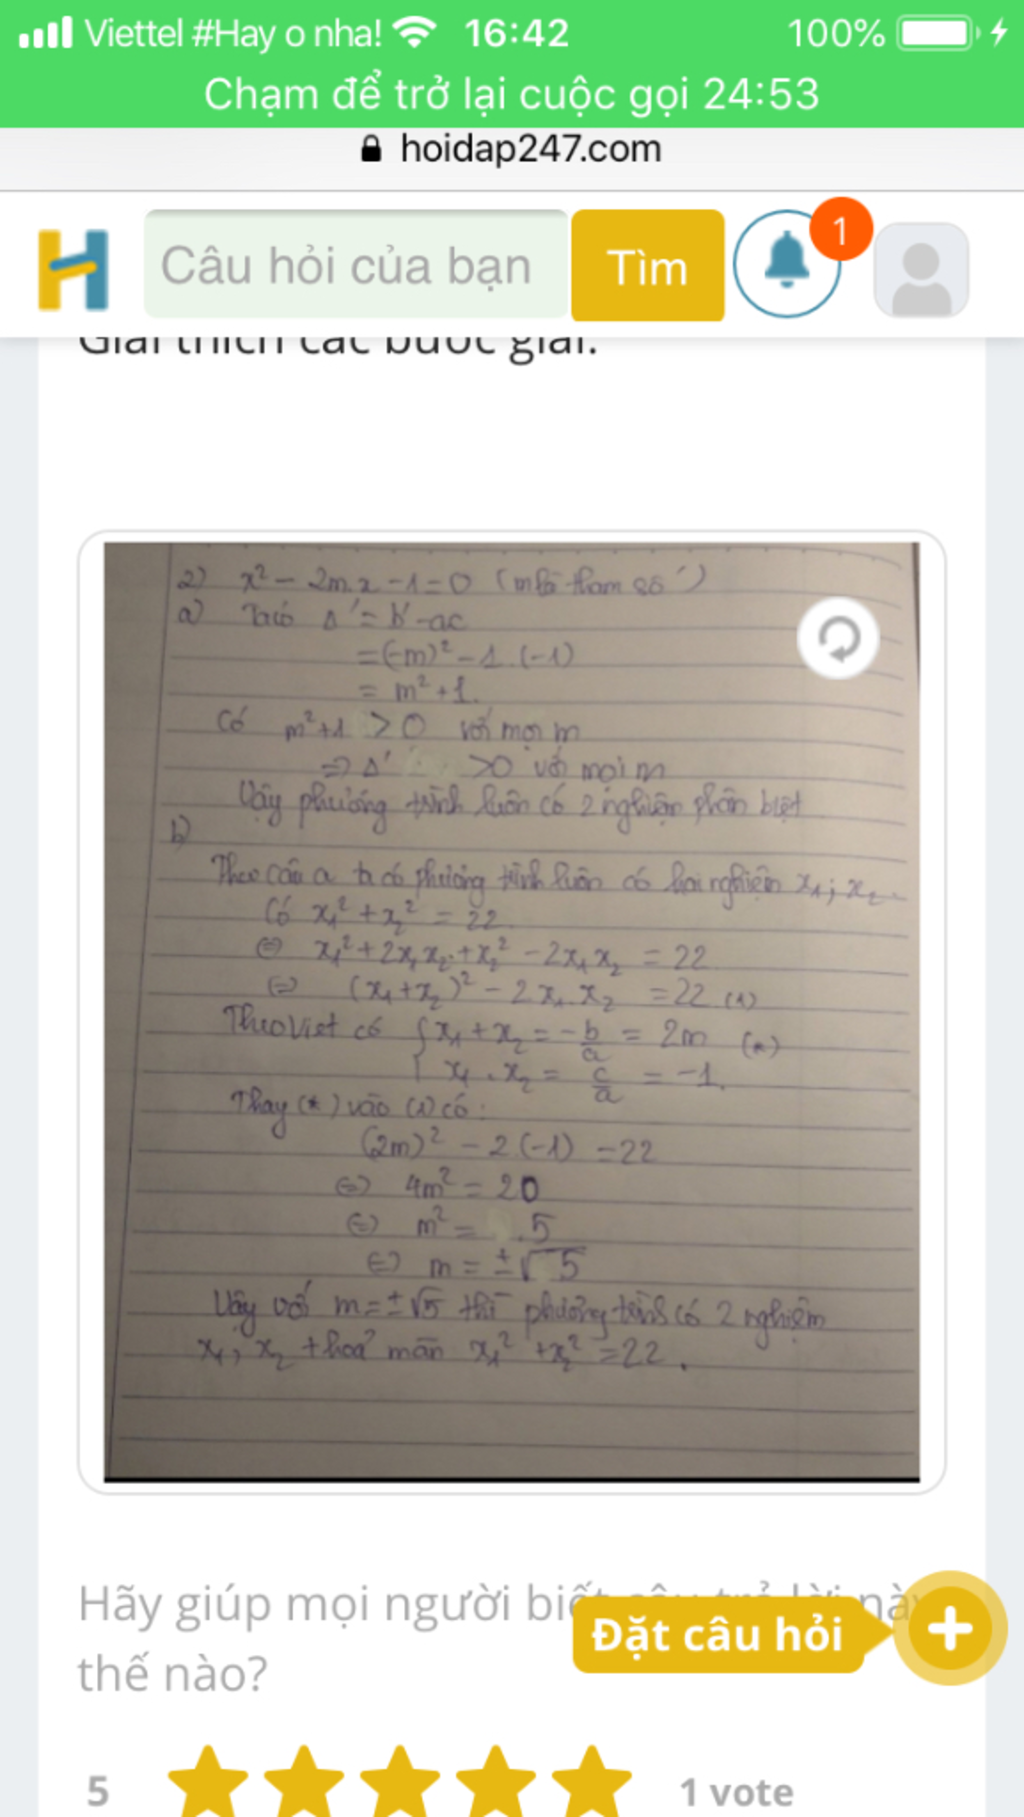 Viettel #Hay o nha! 16:42 100%
Chạm để trở lại cuộc gọi 24:53
hoidap247.com
H Câu hỏi của bạn Tìm 1
Giải thích các bước giải:
2) x² - 2m.x - 1 = 0 (m là tham số)
a) Ta có Δ' = b' - ac
= (-m)² - 1.(-1)
= m² + 1.
Có m² + 1 > 0 với mọi m
⇒ Δ' > 0 với mọi m
Vậy phương trình luôn có 2 nghiệm phân biệt
b)
Theo câu a ta có phương trình luôn có hai nghiệm x₁; x₂
Có x₁² + x₂² = 22
⇔ x₁² + 2x₁x₂ + x₂² - 2x₁x₂ = 22
⇔ (x₁ + x₂)² - 2x₁.x₂ = 22 (1)
Theo Viet có { x₁ + x₂ = -b/a = 2m (*)
x₁.x₂ = c/a = -1.
Thay (*) vào (1) có:
(2m)² - 2(-1) = 22
⇔ 4m² = 20
⇔ m² = 5
⇔ m = ±√5
Vậy với m = ±√5 thì phương trình có 2 nghiệm
x₁; x₂ thoả mãn x₁² + x₂² = 22.
Hãy giúp mọi người biết câu trả lời này
thế nào?
Đặt câu hỏi
5 1 vote